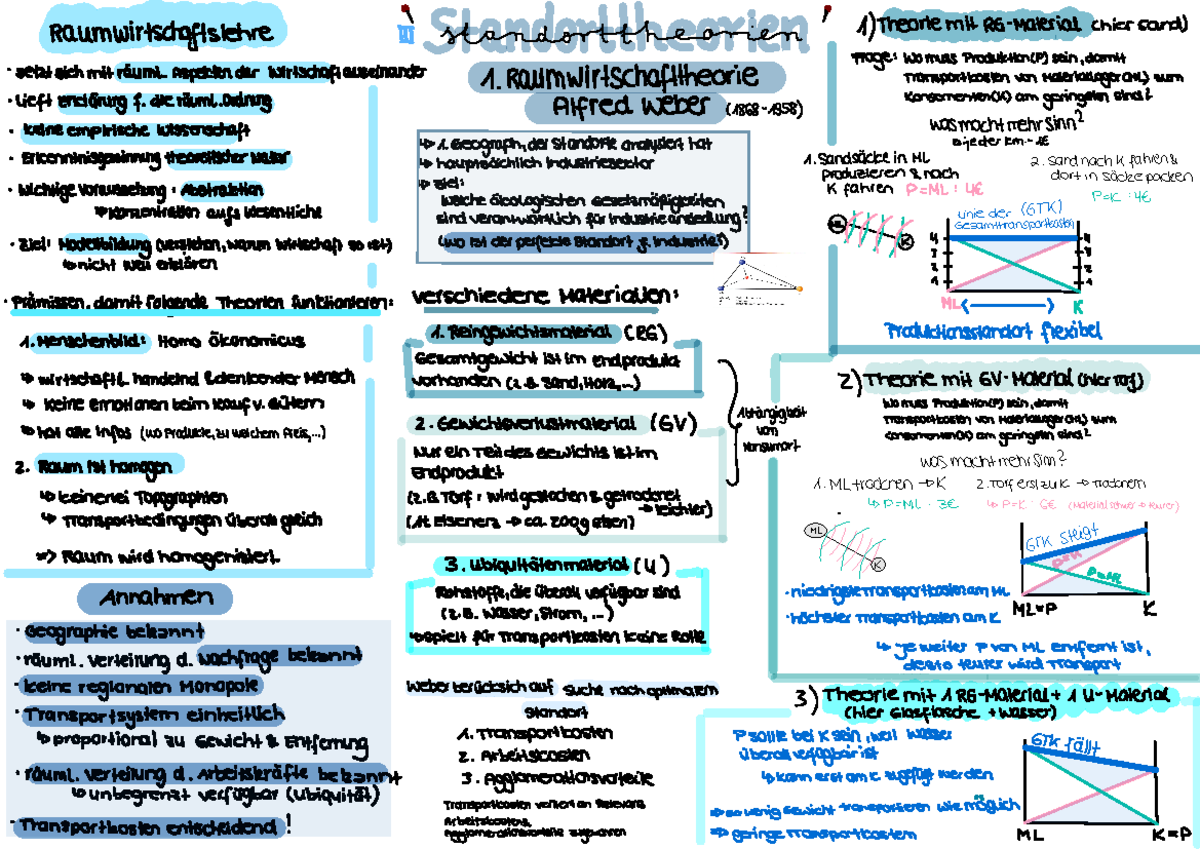 Raumwirtschaftslehre
· setzt sich mit räuml. Aspekten der Wirtschaft auseinander
· Lieft Erklärung f. die räuml. Ordnung
· keine empirische Wissenschaft
· Erkenntnisgewinnung theoretischer Natur
· wichtige Voraussetzung: Abstraktion
Konzentration aufs Wesentliche
· Ziel: Modellbildung (verstehen, warum Wirtschaft so ist)
↳ nicht weil erklären
· Prämissen, damit folgende Theorien funktionieren:
1. Menschenbild: Homo Ökonomicus
↳ wirtschaftl. handelnd & denkender Mensch
↳ keine Emotionen beim Kauf v. Gütern
↳ hat alle Infos (wo Produkte, zu welchem Preis,...)
2. Raum ist homogen
↳ keinerlei Topographien
↳ Transportbedingungen überall gleich
=> Raum wird homogenisiert
Annahmen
· Geographie bekannt
· räuml. Verteilung d. Nachfrage bekannt
· keine regionalen Monopole
· Transportsystem einheitlich
↳ proportional zu Gewicht & Entfernung
· räuml. Verteilung d. Arbeitskräfte bekannt
↳ unbegrenzt verfügbar (Ubiquität)
· Transportkosten entscheidend!
III Standorttheorien
standorttheorien
1. Raumwirtschafttheorie
Alfred Weber (1868-1958)
↳ 1. Geograph, der Standorte analysiert hat
↳ hauptsächlich Industriesektor
↳ Ziel:
Welche ökologischen Gesetzmäßigkeiten
sind verantwortlich für Industrieansiedlung?
(wo ist der perfekte Standort f. Industrie?)
verschiedene Materialien:
1. Reingewichtsmaterial (RG)
Gesamtgewicht ist im Endprodukt
vorhanden (z.B. Sand, Holz,...)
2. Gewichtsverlustmaterial (GV)
Nur ein Teil des Gewichts ist im
Endprodukt
(z.B. Torf: wird gestochen & getrocknet
→ leichter)
(1t Eisenerz → ca. 200g Eisen)
Abhängigkeit
von
Konsumort
3. Ubiquitätenmaterial (U)
Rohstoffe, die überall verfügbar sind
(z.B. Wasser, Strom, ...)
↳ spielt für Transportkosten keine Rolle
Weber berücksich auf Suche nach optimalem
Standort
1. Transportkosten
2. Arbeitskosten
3. Agglomerationsvorteile
Transportkosten verlieren an Relevanz
Arbeitskosten,
Agglomerationsvorteile zugenommen
1) Theorie mit RG-Material (hier Sand)
Frage: Wo muss Produktion(P) sein, damit
Transportkosten von Materiallager(ML) zum
Konsumenten(K) am geringsten sind?
was macht mehr Sinn?
jeder km = 1€
1. Sandsäcke in ML
produzieren & nach
K fahren P=ML: 4€
2. Sand nach K fahren &
dort in Säcke packen
P=K: 4€
ML
K
Linie der (GTK)
Gesamttransportkosten
ML
K
Produktionsstandort flexibel
2) Theorie mit GV-Material (hier Torf)
Wo muss Produktion(P) sein, damit
Transportkosten von Materiallager(ML) zum
Konsumenten(K) am geringsten sind?
was macht mehr Sinn?
1. ML trocknen → K
2. Torf erst zu K → trocknen
↳ P=ML: 3€
↳ P=K: 6€ (Material schwer → teurer)
ML
K
GTK steigt
P=K
P=ML
ML=P
K
· niedrigste Transportkosten am ML
· höchster Transportkosten am K
↳ je weiter P von ML entfernt ist,
desto teurer wird Transport
3) Theorie mit 1 RG-Material + 1 U-Material
(hier Glasflasche + Wasser)
P sollte bei K sein, weil Wasser
überall verfügbar ist
↳ kann erst am K zugefügt werden
=> so wenig Gewicht transportieren wie möglich
=> geringe Transportkosten
GTK fällt
ML
K=P